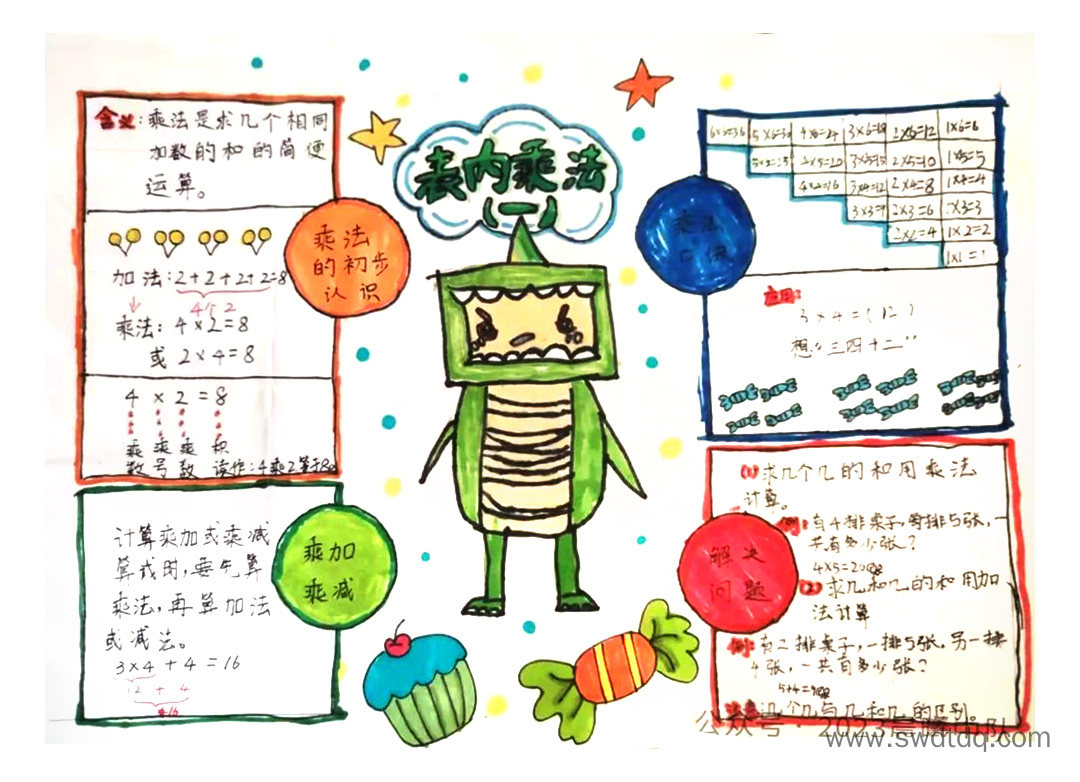 表内乘法
(一)
含义:乘法是求几个相同
加数的和的简便
运算。
加法:2+2+2+2=8
4个2
乘法:4×2=8
或 2×4=8
4 × 2 = 8
乘 乘 乘 积
数 号 数 读作:4乘2等于8。
乘法
的初步
认识
计算乘加或乘减
算式时,要先算
乘法,再算加法
或减法。
3×4+4=16
12 + 4
16
乘加
乘减
6×6=36 5×6=30 4×6=24 3×6=18 2×6=12 1×6=6
5×5=25 4×5=20 3×5=15 2×5=10 1×5=5
4×4=16 3×4=12 2×4=8 1×4=4
3×3=9 2×3=6 1×3=3
2×2=4 1×2=2
1×1=1
乘法
口诀
应用:
3×4=(12)
想:“三四十二”
(1)求几个几的和用乘法
计算。
例:有4排桌子,每排5张,一
共有多少张?
4×5=20
(2)求几和几的和用加
法计算
例:有二排桌子,一排5张,另一排
4张,一共有多少张?
5+4=9
几个几与几和几的区别
解决
问题
www.swdtdq.com